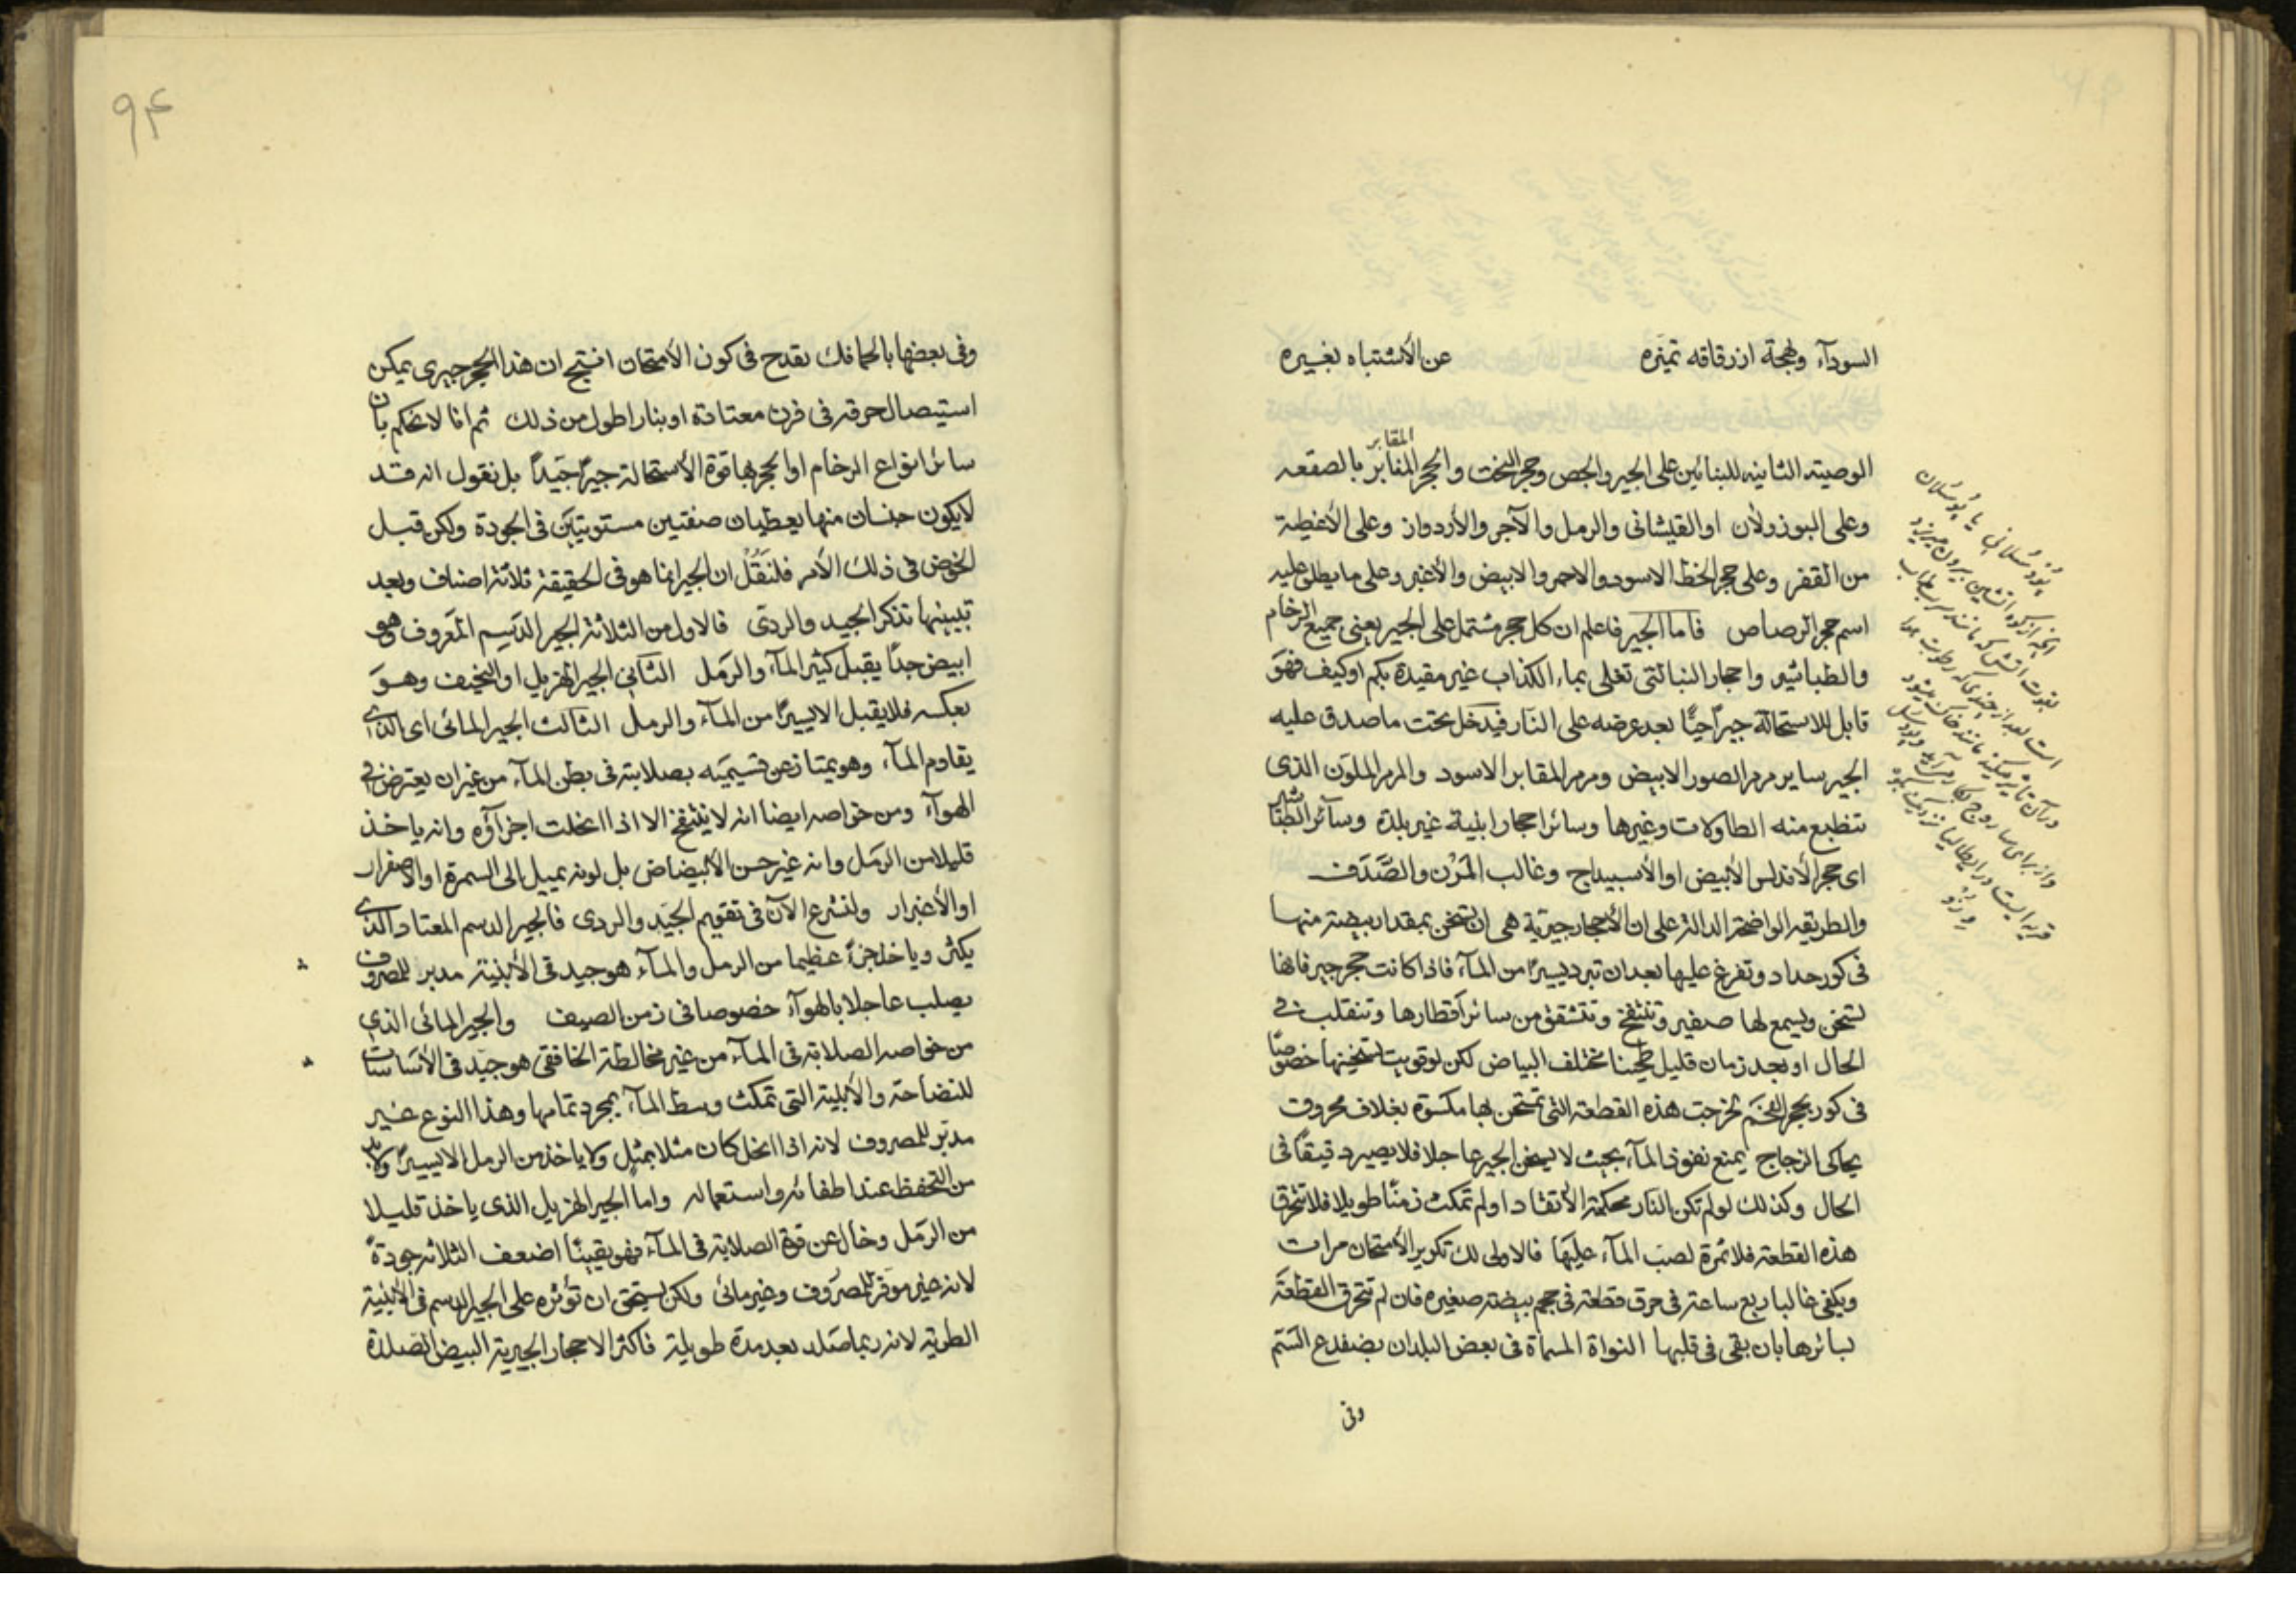 السودآء ولهجة ازرقاقه تميزه عن الأشتباه بغيره
المقابر
الوصية الثانيه للبنائين على الجير والجص وحجر النحت والحجر المقابر بالصقعه
وعلى البوزولان او القيشانى والرمل والآجر والأردواز وعلى الأغطية
من القفر وعلى حجر الخط الاسود والاحمر والابيض والأغبر وعلى ما يطلق عليه
اسم حجر الرصاص فاما الجير فاعلم ان كل حجر مشتمل على الجير يعنى جميع الرخام
والطباشير واحجار البنا التى تغلى بماء الكذاب غير مقيدة بكم او كيف فهو
قابل للاستحالة جيراً حيًّا بعد عرضه على النار فيدخل تحت ما صدق عليه
الجير ساير مرمر الصور الابيض ومرمر المقابر الاسود والمرمر الملون الذى
تنطبع منه الطاولات وغيرها وسائر احجار ابنية غير بلدة وسآئر الطباشير
اى حجر الأندلس الأبيض او الأسبيداج وغالب المرن والصدف
والطريقة الواضحة الدالة على ان الأحجار جيرية هى ان تسخن بمقدار بيضة منها
فى كور حداد وتفرغ عليها بعد ان تبرد يسيراً من المآء فاذا كانت حجر جير فانها
تسخن ويسمع لها صفير وتنتفخ وتتشقق من سائر اقطارها وتنقلب فى
الحال او بعد زمان قليل طحينا مختلف البياض لكن لو قويت تسخينها خصوصًا
فى كور بحجر الفحم لخرجت هذه القطعة التى تمتحن بها مكسوة بغلاف محروق
يحاكى الزجاج يمنع نفوذ المآء بحيث لا يسخن الجير عاجلا فلا يصير دقيقًا فى
الحال وكذلك لو لم تكن النار محكمة الأتقاد او لم تمكث زمنًا طويلا فلا تحرق
هذه القطعة فلا ثمرة لصب المآء عليها فالاولى لك تكرير الأمتحان مرات
ويكفى غالبا ربع ساعة فى حرق قطعة فى حجم بيضة صغيره فان لم تحرق القطعة
بسائرها بان بقى فى قلبها النواة المسماة فى بعض البلدان بضفدع السم
وفى
پوزولانى يا پوسلان
ودر ايطاليا نزديك
۹۴
وفى بعضها بالحافك يقدح فى كون الأمتحان انتج ان هذا الحجر جيرى يمكن
استيصال حرقه فى فرن معتادة او بنار اطول من ذلك ثم انا لا نحكم بان
سائر انواع الرخام او الحجر بها قوة الأستحالة جيراً جيّداً بل نقول انه قد
لا يكون جنسان منها يعطيان صنفتين مستويتين فى الجودة ولكن قبل
الخوض فى ذلك الأمر فلنقُل ان الجير انما هو فى الحقيقة ثلاثة اصناف وبعد
تبيينها نذكر الجيد والردى فالاول من الثلاثة الجير الدسيم المعروف وهو
ابيض جداً يقبل كثير المآء والرمل الثانى الجير الهزيل او النحيف وهو
بعكسه فلا يقبل الا يسيراً من المآء والرمل الثالث الجير المائى اى الذى
يقاوم المآء وهو يمتاز عن قسيميه بصلابته فى بطن المآء من غير ان يعترض فى
الهوآء ومن خواصه ايضا انه لا ينتفخ الا اذا انحلت اجزآؤه وانه ياخذ
قليلا من الرمل وانه غير حسن الأبيضاض بل لونه يميل الى السمرة او الاصفرار
او الأغبرار ولنشرع الآن فى تقويم الجيد والردى فالجير الدسم المعتاد الذى
يكثر وياخذ جزءً عظيما من الرمل والمآء هو جيد فى الأبنية مدبر للمصروف
يصلب عاجلا بالهوآء خصوصا فى زمن الصيف والجير المائى الذى
من خواصه الصلابة فى المآء من غير مخالطة الخافقى هو جيّد فى الأساسات
للنضاحة والأبنية التى تمكث وسط المآء بمجرد تمامها وهذا النوع غير
مدبّر للمصروف لانه اذا انحل كان مثلا بمثل ولا ياخذ من الرمل الا يسيراً ولا بد
من التحفظ عند اطفائه واستعماله واما الجير الهزيل الذى ياخذ قليلا
من الرمل وخال عن قوة الصلابة فى المآء فهو يقينًا اضعف الثلاثة جودةً
لانه غير موفر للمصروف وغير مائى ولكن يستحق ان تؤثره على الجير الدسم فى الأبنية
الطرية لانه ربما صلد بعد مدة طويلة فاكثر الاحجار الجيرية البيض الصلدة